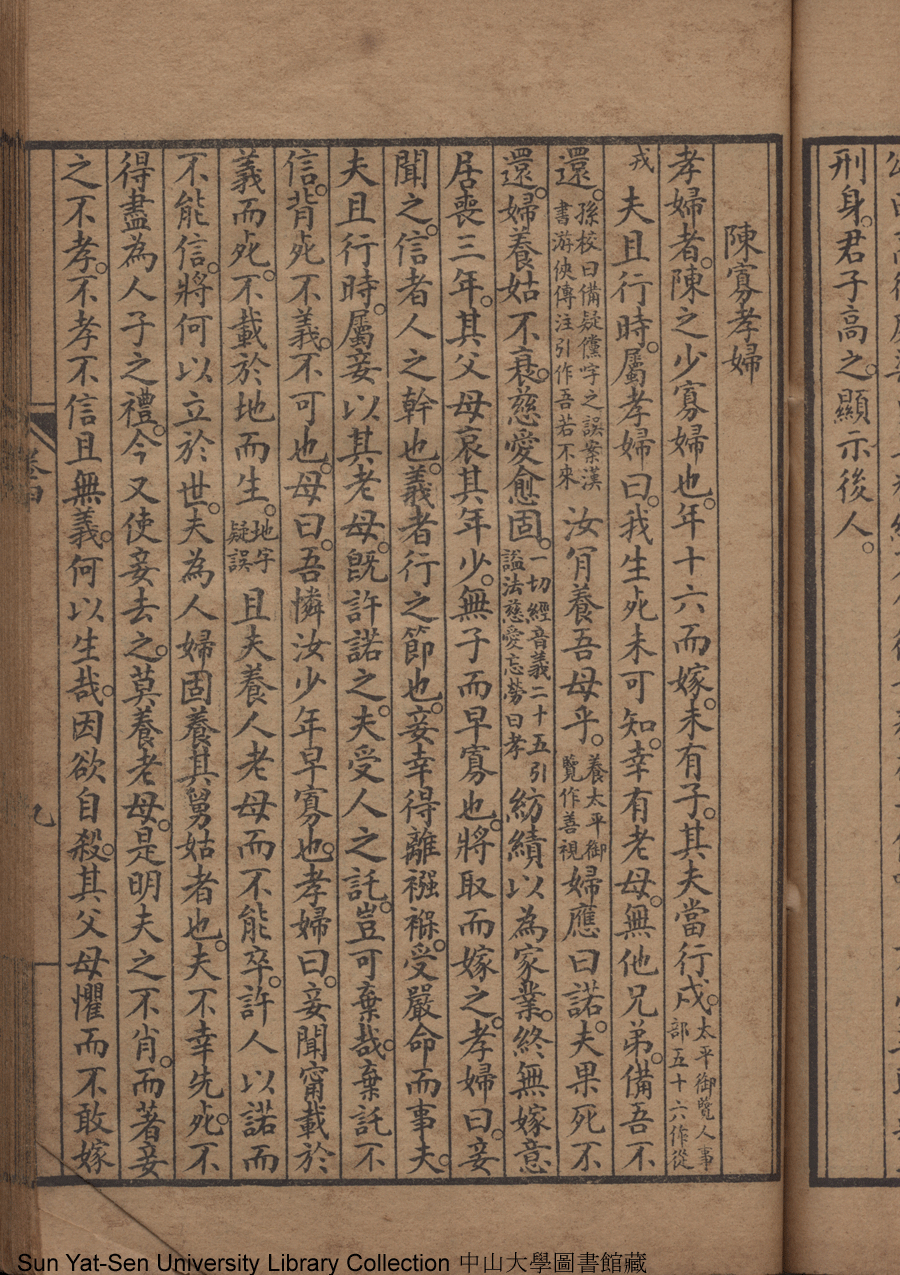 刑身。君子高之。顯示後人。
陳寡孝婦
孝婦者。陳之少寡婦也。年十六而嫁。未有子。其夫當行戍。太平御覽人事部五十六作從
戎夫且行時。屬孝婦曰。我生死未可知。幸有老母。無他兄弟。備吾不
還。孫校曰備疑儻字之誤案漢書游俠傳注引作吾若不來汝肎養吾母乎。養太平御覽作善視婦應曰諾。夫果死不
還。婦養姑不衰。慈愛愈固。一切經音義二十五引謚法慈愛忘勞曰孝紡績以為家業。終無嫁意
居喪三年。其父母哀其年少。無子而早寡也。將取而嫁之。孝婦曰。妾
聞之。信者人之幹也。義者行之節也。妾幸得離襁褓。受嚴命而事夫。
夫且行時。屬妾以其老母。旣許諾之。夫受人之託。豈可棄哉。棄託不
信。背死不義。不可也。母曰。吾憐汝少年早寡也。孝婦曰。妾聞甯載於
義而死。不載於地而生。地字疑誤且夫養人老母而不能卒。許人以諾而
不能信。將何以立於世。夫為人婦固養其舅姑者也。夫不幸先死。不
得盡為人子之禮。今又使妾去之。莫養老母。是明夫之不肖。而著妾
之不孝。不孝不信且無義。何以生哉。因欲自殺。其父母懼而不敢嫁
卷四
Sun Yat-Sen University Library Collection 中山大學圖書館藏